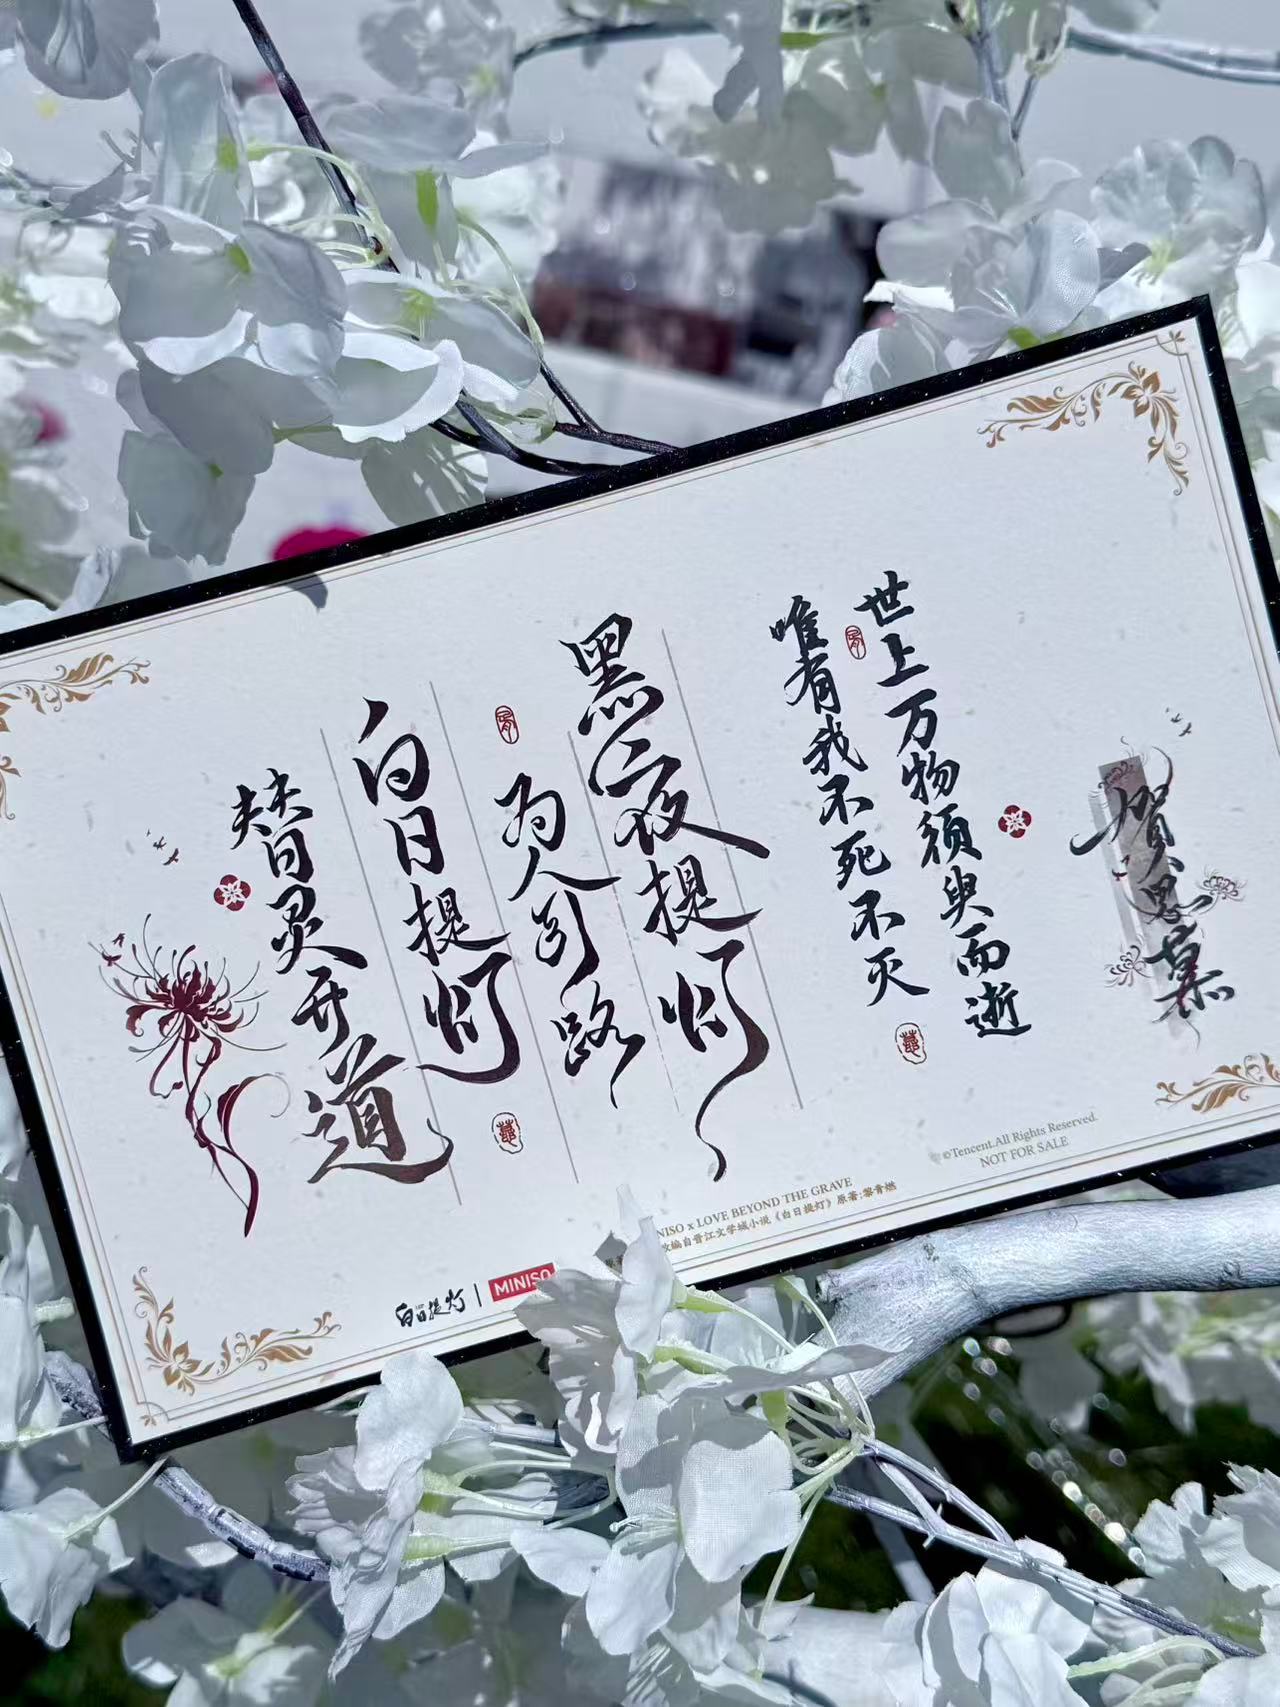 贺思慕
世上万物须臾而逝
唯有我不死不灭
黑夜提灯
为人引路
白日提灯
替灵开道
©Tencent.All Rights Reserved.
NOT FOR SALE
NISO x LOVE BEYOND THE GRAVE
改编自晋江文学城小说《白日提灯》原著:黎青燃
白日提灯 | MINISO